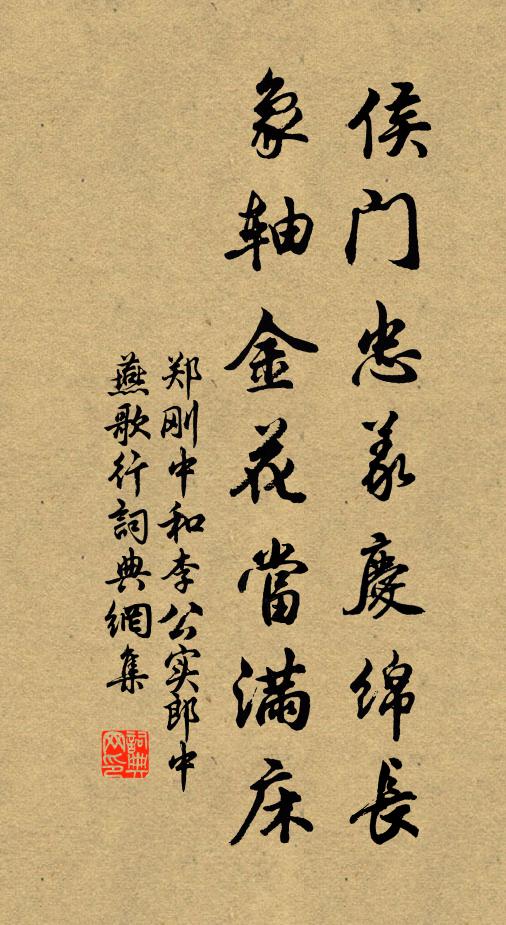 侯门忠义慶绵長
象轴金花當满床
郑刚中和李公实郎中
燕歌行詞典網集
詞典网印